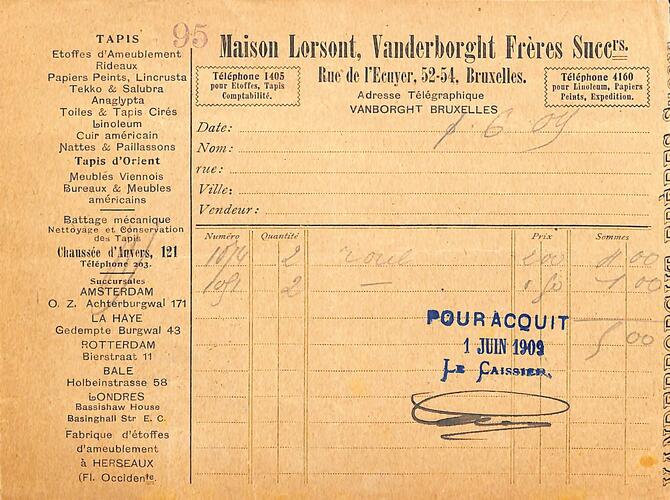 TAPIS
Etoffes d'Ameublement
Rideaux
Papiers Peints, Lincrusta
Tekko & Salubra
Anaglypta
Toiles & Tapis Cirés
Linoleum
Cuir américain
Nattes & Paillassons
Tapis d'Orient
Meubles Viennois
Bureaux & Meubles
américains
Battage mécanique
Nettoyage et Conservation
des Tapis
Chaussée d'Anvers, 121
Téléphone 263.
Succursales
AMSTERDAM
O. Z. Achterburgwal 171
LA HAYE
Gedempte Burgwal 43
ROTTERDAM
Bierstraat 11
BALE
Holbeinstrasse 58
LONDRES
Bassishaw House
Basinghall Str E. C.
Fabrique d'étoffes
d'ameublement
à HERSEAUX
(Fl. Occidente.
95
Maison Lorsont, Vanderborght Frères Succrs.
Téléphone 1405
pour Etoffes, Tapis
Comptabilité.
Rue de l'Ecuyer, 52-54, Bruxelles.
Adresse Télégraphique
VANBORGHT BRUXELLES
Téléphone 4160
pour Linoleum, Papiers
Peints, Expedition.
Date: 1. 6 09
Nom:
rue:
Ville:
Vendeur:
Numéro Quantité Prix Sommes
2 roul 200 4 00
2 — 1 00
5 00
POUR ACQUIT
1 JUIN 1909
LE CAISSIER,